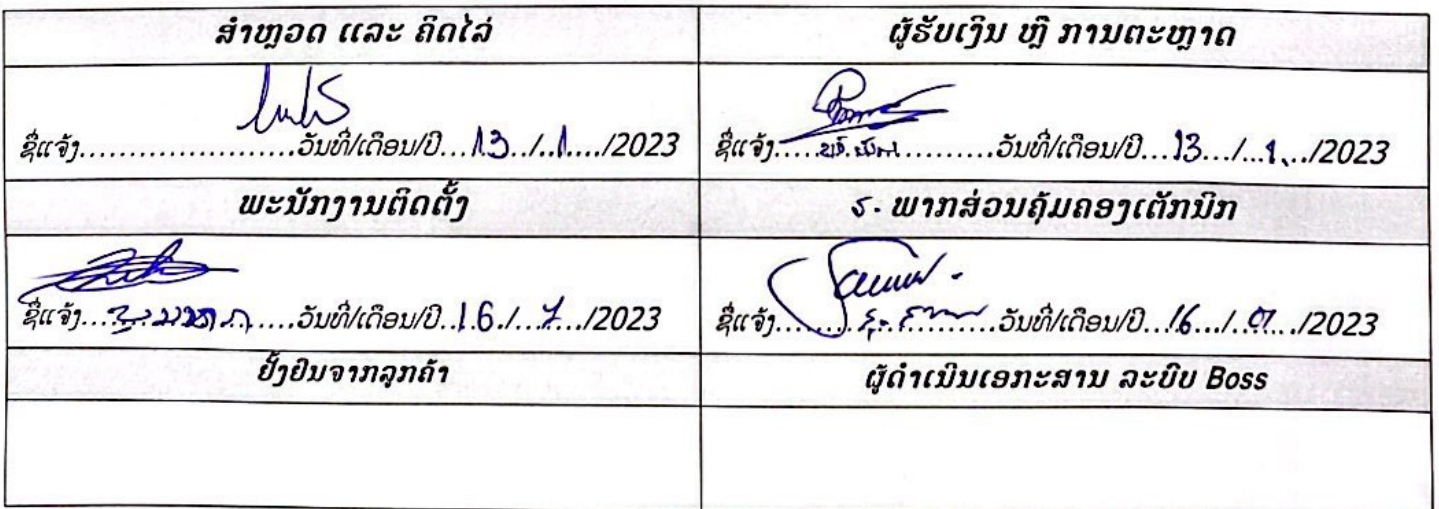 ສຳຫຼວດ ແລະ ຄິດໄລ່
ຜູ້ຮັບເງິນ ຫຼື ການຕະຫຼາດ
ຊື່ແຈ້ງ......................ວັນທີ່/ເດືອນ/ປີ...13../..1..../2023
ຊື່ແຈ້ງ......................ວັນທີ່/ເດືອນ/ປີ...13.../...1.../2023
ພະນັກງານຕິດຕັ້ງ
ຮ. ພາກສ່ວນຄຸ້ມຄອງເຕັກນິກ
ຊື່ແຈ້ງ......................ວັນທີ່/ເດືອນ/ປີ..16./.../2023
ຊື່ແຈ້ງ......................ວັນທີ່/ເດືອນ/ປີ...16.../..01.../2023
ຢັ້ງຢືນຈາກລູກຄ້າ
ຜູ້ດຳເນີນເອກະສານ ລະບົບ Boss